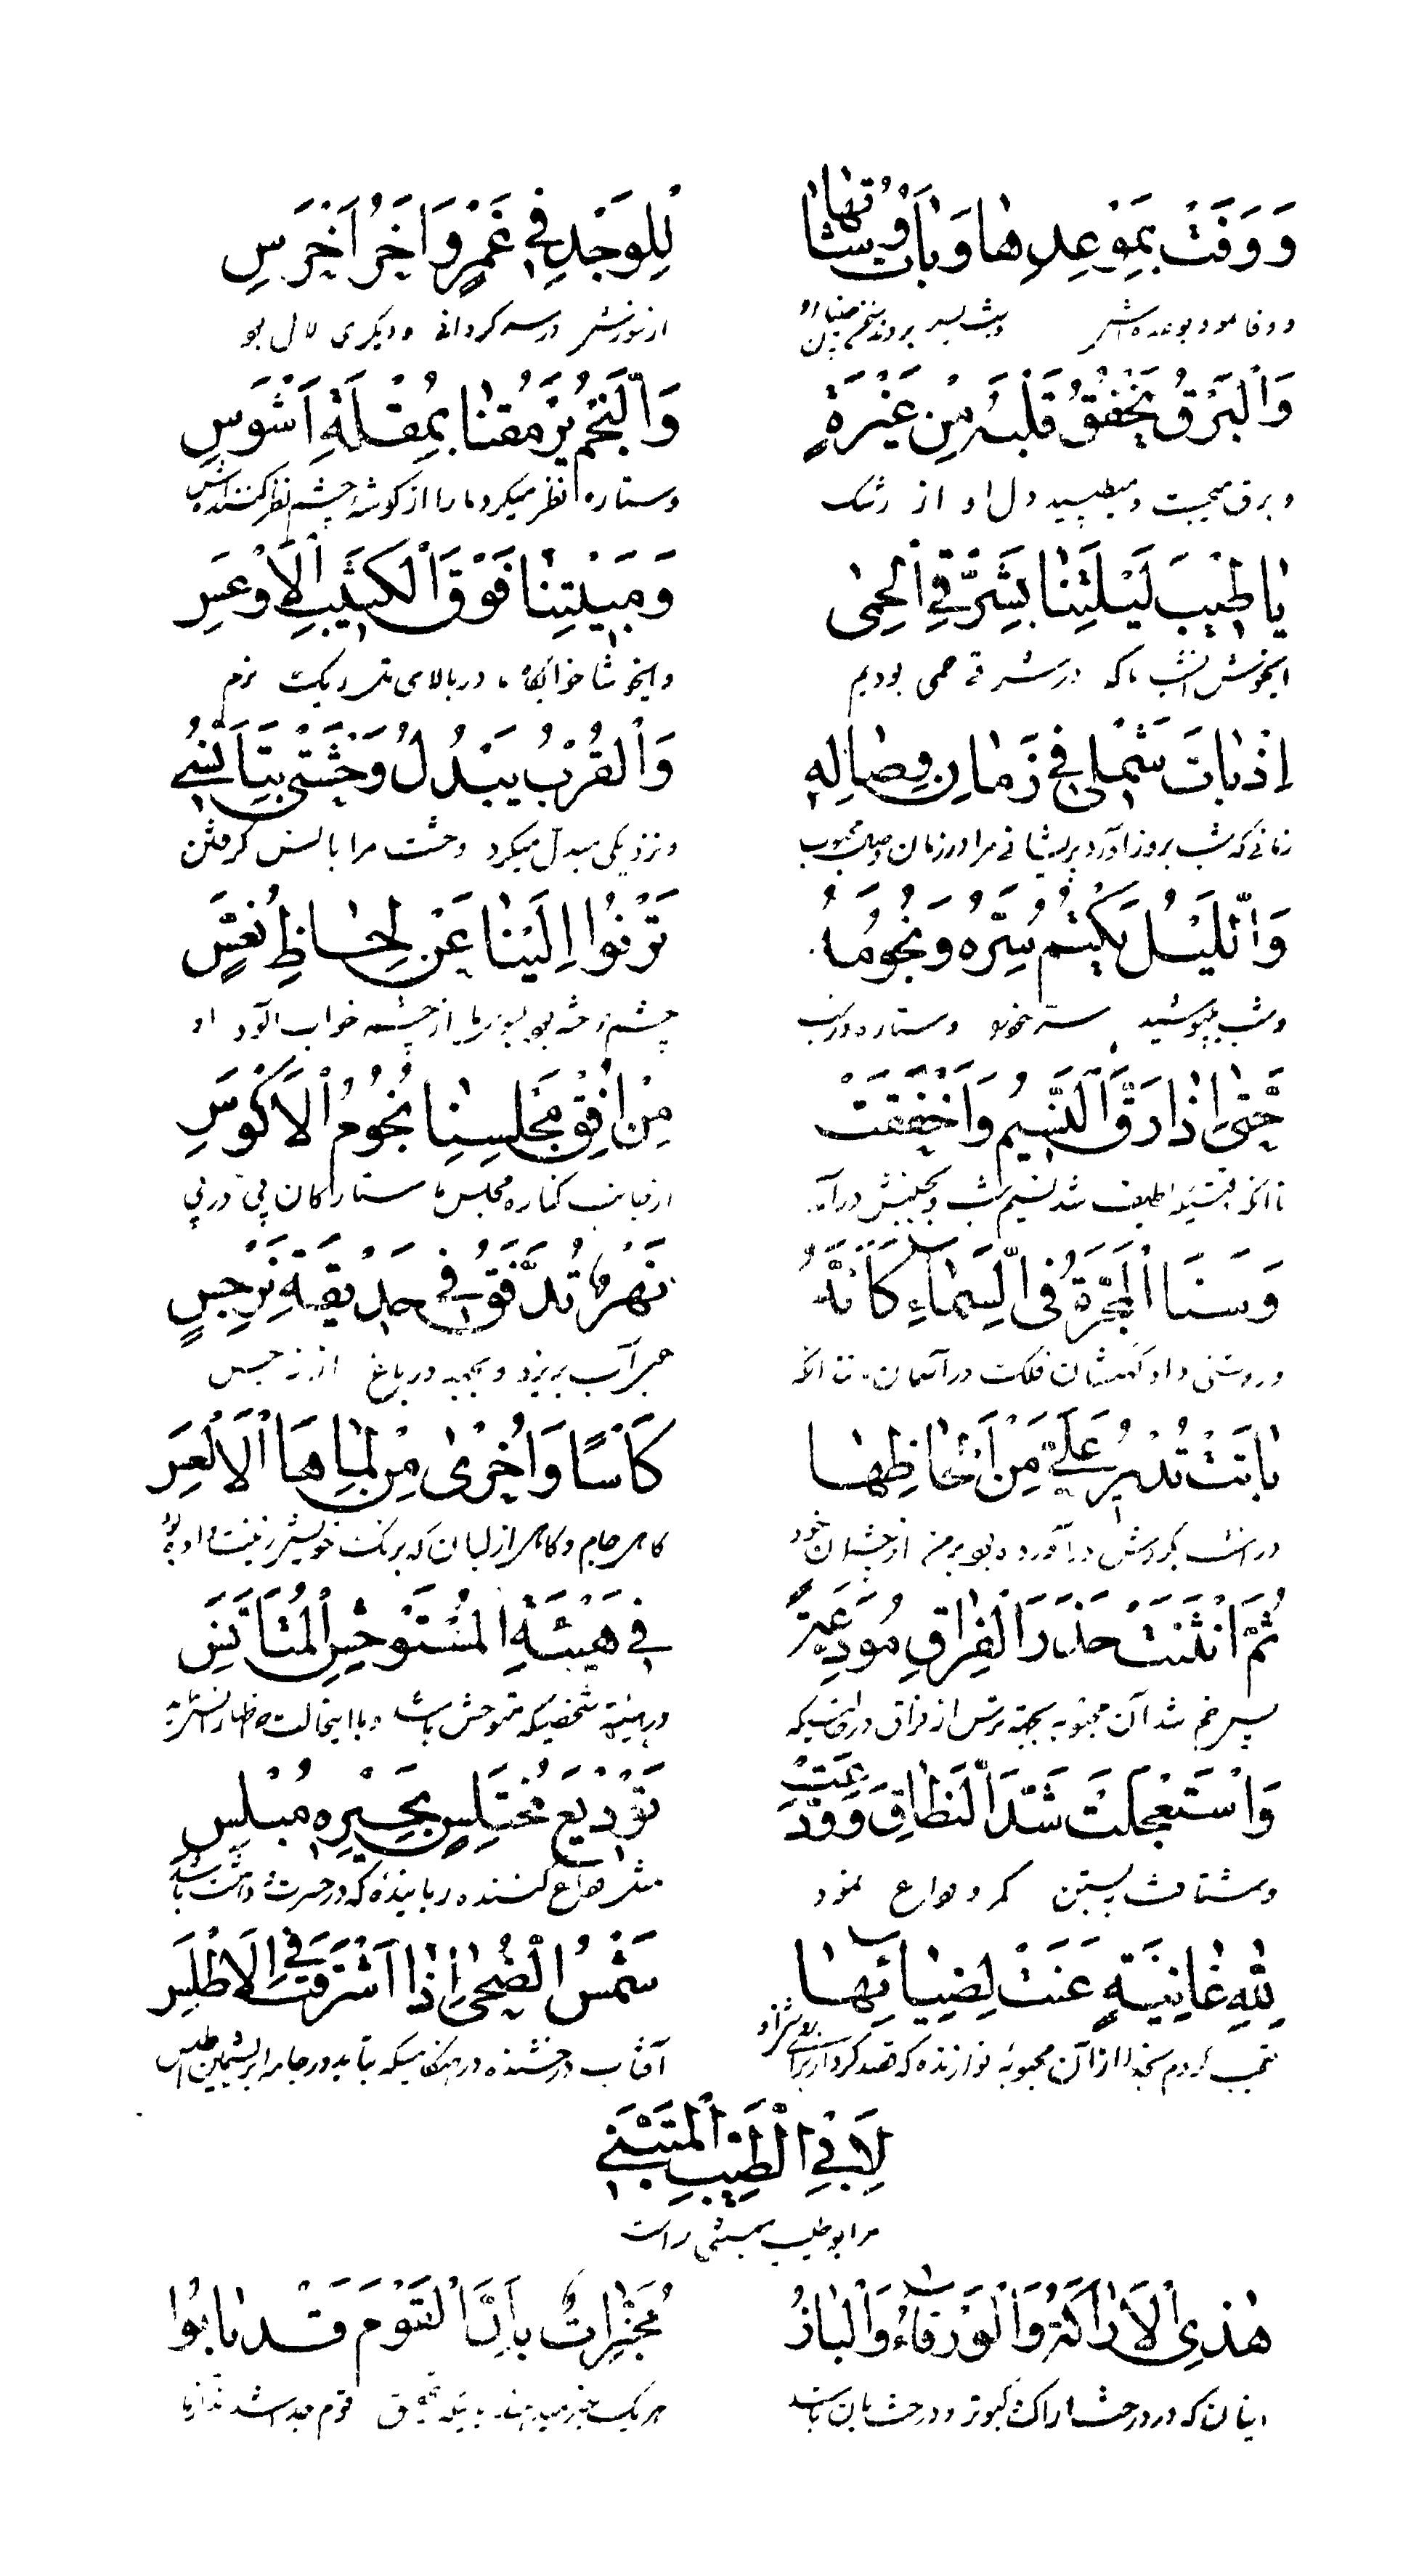 وَوَفَتْ بِمَوْعِدِهَا وَبَاتَ وُشَاتُهَا لِلْوَجْدِ فِي غَمْرٍ وَاخَرُ اَخْرَسِ
ووفا نمود بوعده اش و شب بسر بردند سخن چینان او از سوزش در سرگردانی و دیگری لال بو
وَالْبَرْقُ يَخْفِقُ قَلْبُهُ مِنْ غَيْرَةٍ وَالنَّجْمُ يَرْمُقُنَا بِمُقْلَةِ اَشْوَسِ
و برق میجست و میطپید دل او از رشک و ستاره نظر میکرد ما را از گوشهٔ چشم نظر کننده
يَا طِيبَ لَيْلَتِنَا بِشَرْقِيِّ الْحِمٰى وَمَبِيْتِنَا فَوْقَ الْكَثِيبِ الْاَوْعَسِ
ایخوش انشب ما که در شرقی حمی بودیم و ایخوشا خوابگاه ما در بالای تل ریک نرم
اِذْ بَاتَ شَمْلِي فِي زَمَانِ وِصَالِهِ وَالْقُرْبُ يُبْدِلُ وَحْشَتِي بِتَاَنُّسِي
زمانیکه شب بروز آورد پریشانی مرا در زمان وصل محبوب و نزدیکی مبدل میکرد وحشت مرا بانس گرفتن
وَاللَّيْلُ يَكْتُمُ سِرَّهُ وَنُجُومُهُ تَرْنُوا اِلَيْنَا عَنْ لِحَاظٍ نُعَّسٍ
و شب میپوشید سر خود و ستاره در شب چشم از خواب آلود او
حَتّٰى اِذَا رَقَّ النَّسِيمُ وَاَخْفَقَتْ مِنْ اُفْقِ مَجْلِسِنَا نُجُومُ الْاَكْؤُسِ
تا آنکه لطیف شد نسیم شب و بجنبش درآمد از جانب کناره مجلس ما ستارگان پی در پی
وَسَنَا الْمَجَرَّةُ فِي السَّمَاءِ كَاَنَّهُ نَهْرٌ تَدَفَّقُ فِي حَدِيقَةِ نَرْجِسٍ
و روشنی داد کهکشان فلک در آسمان آب بریزد و بجهد در باغ از نرجس
بَاتَتْ تُدِيرُ عَلَيَّ مِنْ اَلْحَاظِهَا كَاْسًا وَاُخْرٰى مِنْ لَمَاهَا الْاَلْعَسِ
در انشب بگردش درآورده بود بر من از چشمان خود گاهی جام و گاهی از لبان که برنگ
ثُمَّ انْثَنَتْ حَذَرَ الْفِرَاقِ مُوَدِّعَةً فِي هَيْئَةِ الْمُسْتَوْحِشِ الْمُتَاَنِّسِ
پس خم شد آن محبوبه بجهة ترس از فراق در حالتیکه در هیئة شخصیکه متوحش باشد و با اینحالت
وَاسْتَعْجَلَتْ شَدَّ النِّطَاقِ وَوَدَّعَتْ تَوْدِيعَ مُخْتَلِسٍ بِحَيْرِهِ مُبْلِسِ
و شتافت ببستن کمر و وداع نمود مثل وداع کننده رباینده که در حسرت
لِلّٰهِ غَانِيَةٍ عَنَتْ لِضِيَائِهَا شَمْسُ الضُّحٰى اِذَا اَشْرَقَتْ فِي الْاَطْلَسِ
تعجب کردم بخدا از آن محبوبهٔ نوازنده که قصد کرد از برای آفتاب درخشنده در هنگامیکه بتابد در جامه ابریشمین اطلس
لِاَبِي الطَّيِّبِ الْمُتَنَبِّي
مر ابو طیب متنبی راست
هٰذِي الْاَرَاكَةُ وَالْوَرْقَاءُ وَالْبَانُ مُخْبِرَاتٌ بِاَنَّ الْقَوْمَ قَدْ بَانُوا
اینان که در درخت اراک و کبوتر و درخت بان باشند هریک خبر میدهند باینکه بتحقیق قوم جدا شدند